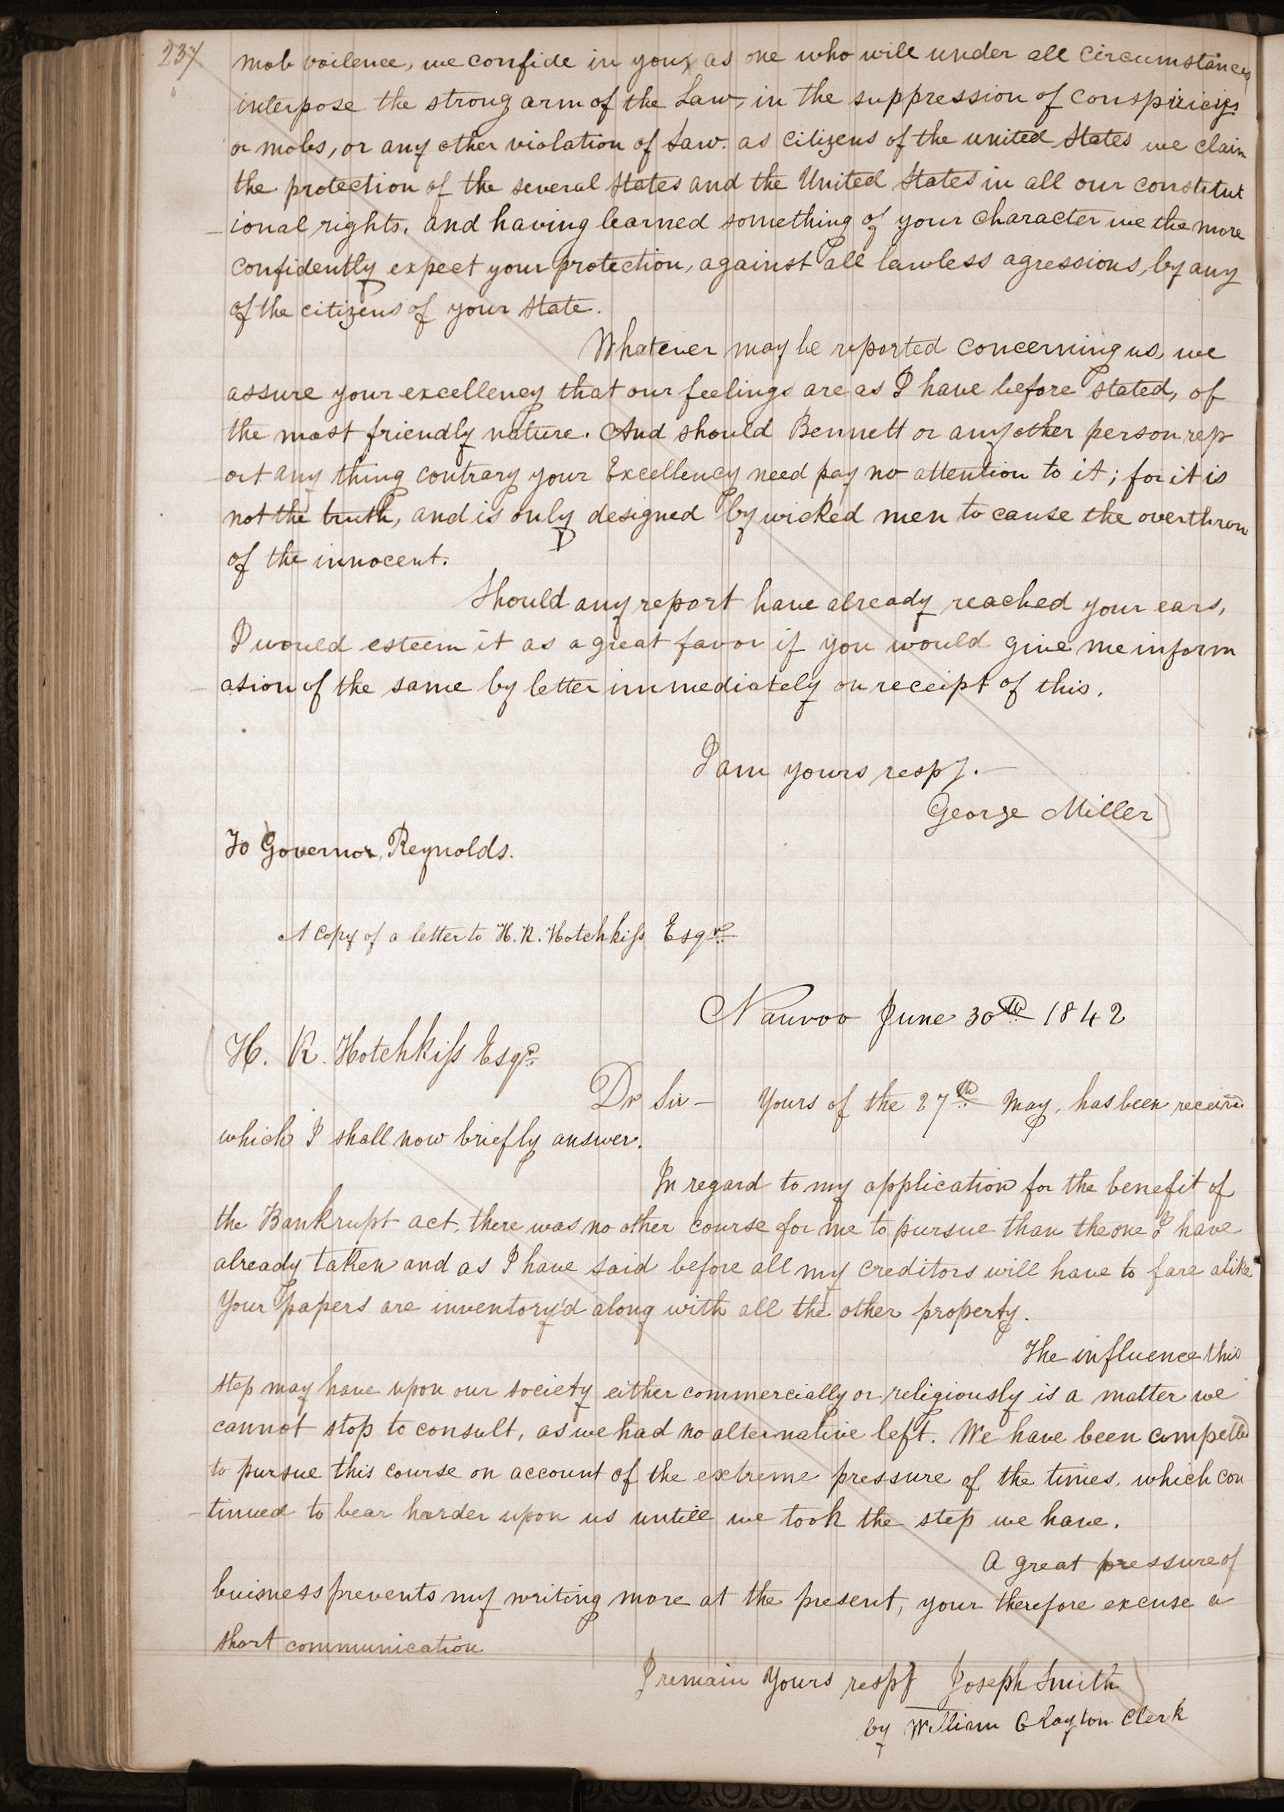 237
mob voilence, we confide in you, as one who will under all circumstances
interpose the strong arm of the Law, in the suppression of conspiricies
or mobs, or any other violation of Law. as citizens of the united States we claim
the protection of the several States and the United States in all our constitut
ional rights. and having learned something of your character we the more
confidently expect your protection, against all lawless agressions, by any
of the citizens of your State.
Whatever may be reported concerning us, we
assure your excellency that our feelings are as I have before stated, of
the most friendly nature. And should Bennett or any other person rep
ort any thing contrary your Excellency need pay no attention to it; for it is
not the truth, and is only designed by wicked men to cause the overthrow
of the innocent.
Should any report have already reached your ears,
I would esteem it as a great favor if you would give me inform
asion of the same by letter immediately on receipt of this.
I am yours respy.
George Miller
To Governor, Reynolds.
A copy of a letter to H. R. Hotchkiss Esqre
Nauvoo June 30th 1842
H. R. Hotchkiss Esqr.
Dr Sir— Yours of the 27th May, has been received
which I shall now briefly answer.
In regard to my application for the benefit of
the Bankrupt act, there was no other course for me to pursue than the one I have
already taken and as I have said before all my creditors will have to fare alike
Your papers are inventory'd along with all the other property.
The influence this
step may have upon our society either commercially or religiously is a matter we
cannot stop to consult, as we had no alternative left. We have been compelled
to pursue this course on account of the extreme pressure of the times, which con
tinued to bear harder upon us untill we took the step we have.
A great pressure of
buisness prevents my writing more at the present, your therefore excuse a
short communication
I remain Yours respy Joseph Smith
by William Clayton Clerk